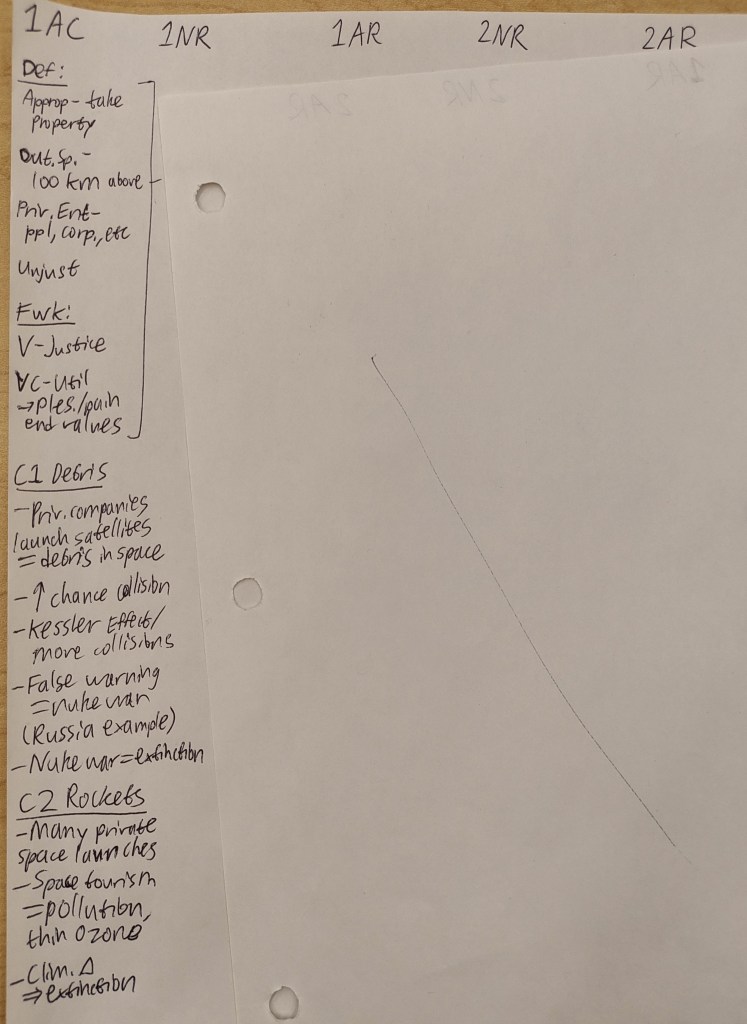 1AC 1NR 1AR 2NR 2AR
Def:
Approp - take
Property
Out. Sp. -
100 km above
Priv. Ent -
ppl, corp., etc
Unjust
Fwk:
V - Justice
VC - Util
→ ples./pain
end values
C1 Debris
- Priv. companies
launch satellites
= debris in space
- ↑ chance collision
- Kessler Effect/
more collisions
- False warning
= nuke war
(Russia example)
- Nuke war = extinction
C2 Rockets
- Many private
space launches
- Space tourism
= pollution,
thin ozone
- Clim. Δ
⇒ extinction
1AR 2NR 2AR